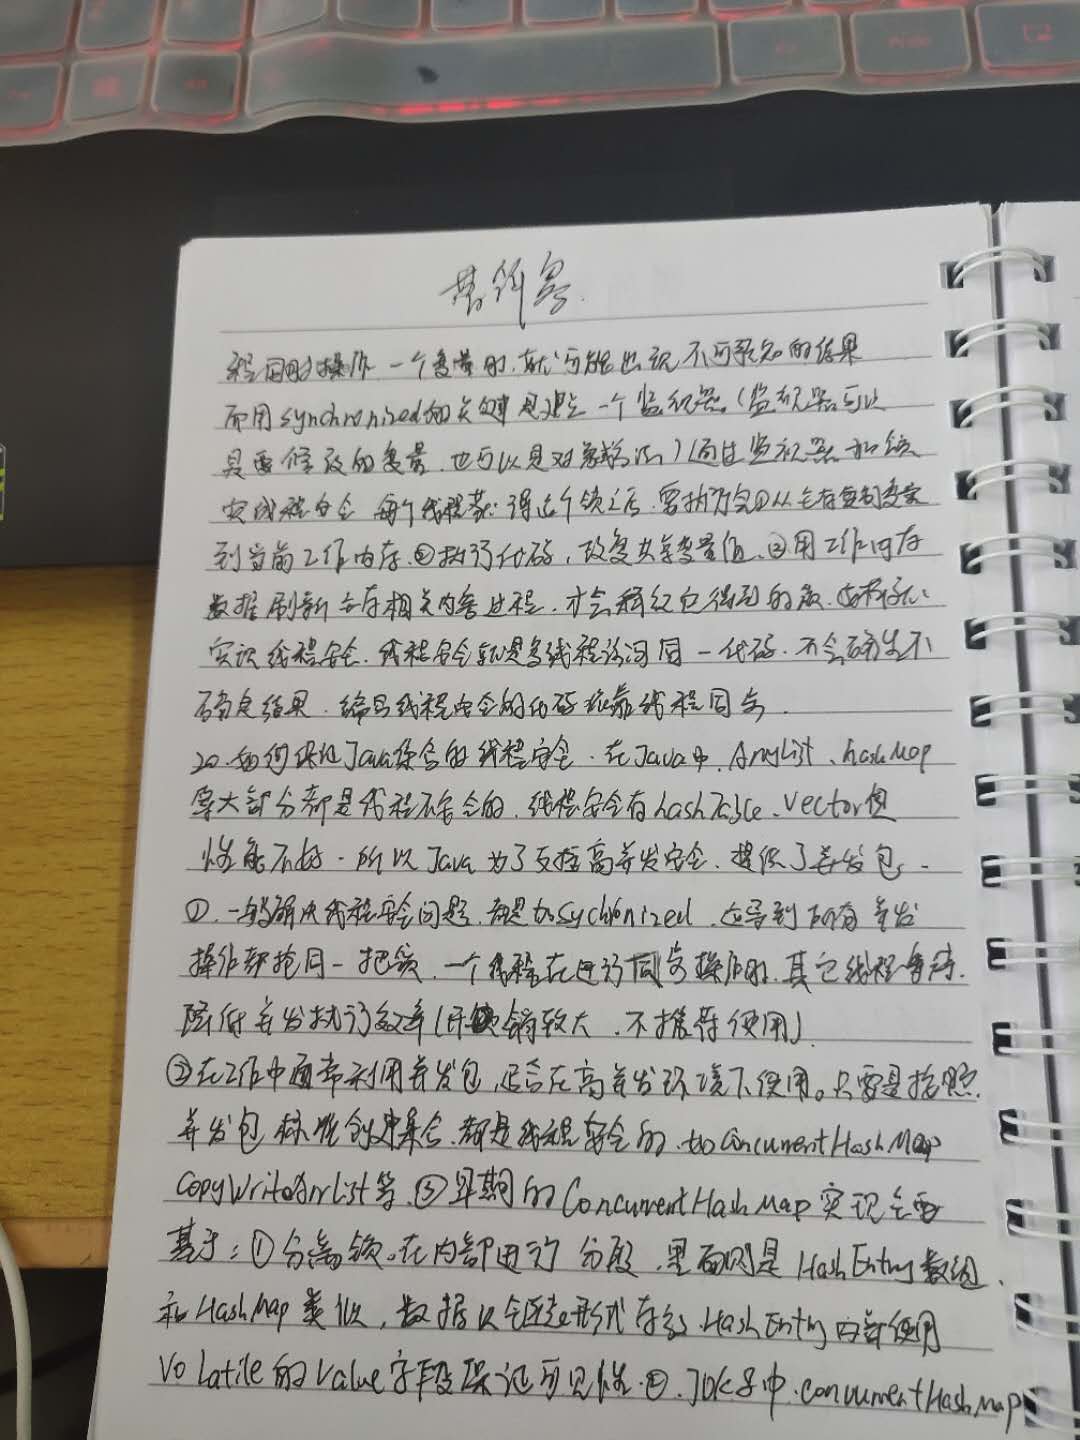 程同时操作一个变量时,就可能出现不可预知的结果
而用synchronized的关键是建立一个监视器(监视器可以
是要修改的变量,也可以是对象方法)通过监视器和锁
实线程安全 每个线程获得这个锁之后,要执行完①从主存复制变量
到当前工作内存.②执行代码,改变共享变量值.③用工作内存
数据刷新主存相关内容过程,才会释放它得到的锁.这样
实识线程安全.线程安全就是多线程访问同一代码.不会产生不
确定结果.编写线程安全的代码依靠线程同步.
20.如何保证Java集合的线程安全.在Java中.ArryList、hashMap
等大部分都是线程不安全的.线程安全有hashTable、Vector但
性能不好.所以Java为了支持高并发安全.提供了并发包.
①.一般解决线程安全问题,都是加Sychonized.这导到所有并发
操作都抢同一把锁,一个线程在进行同步操作时,其它线程等待.
降低并发执行效率(开锁销较大,不推荐使用)
②在工作中通常利用并发包,适合在高并发环境下使用。只要是按照
并发包标准创建集合,都是线程安全的.如ConcurrentHashMap
CopyWriteArrList等.③早期的ConcurrentHashMap实现主要
基于:①分离锁。在内部进行分段,里面则是HashEntry数组、
和HashMap类似,数据以链表形式存放.HashEntry内部使用
Volatile的Value字段保证可见性.②.JDK8中.ConcurrentHashMap